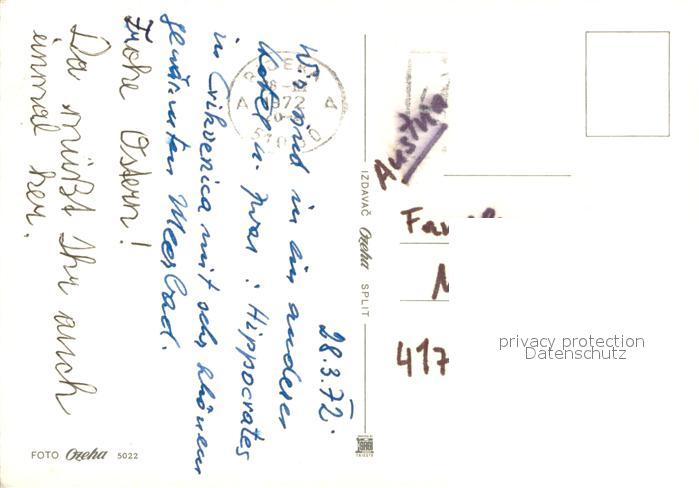 28.3.72.
Wir sind in ein anderes
Hotel u. zwar: Hippocrates
in Crikvenica mit sehr schönem
geheizten Meerbad.
Frohe Ostern!
Da müßt Ihr auch
einmal her.
Austria
Fam
417
IZDAVAČ Ozeha SPLIT
FOTO Ozeha 5022
privacy protection
Datenschutz